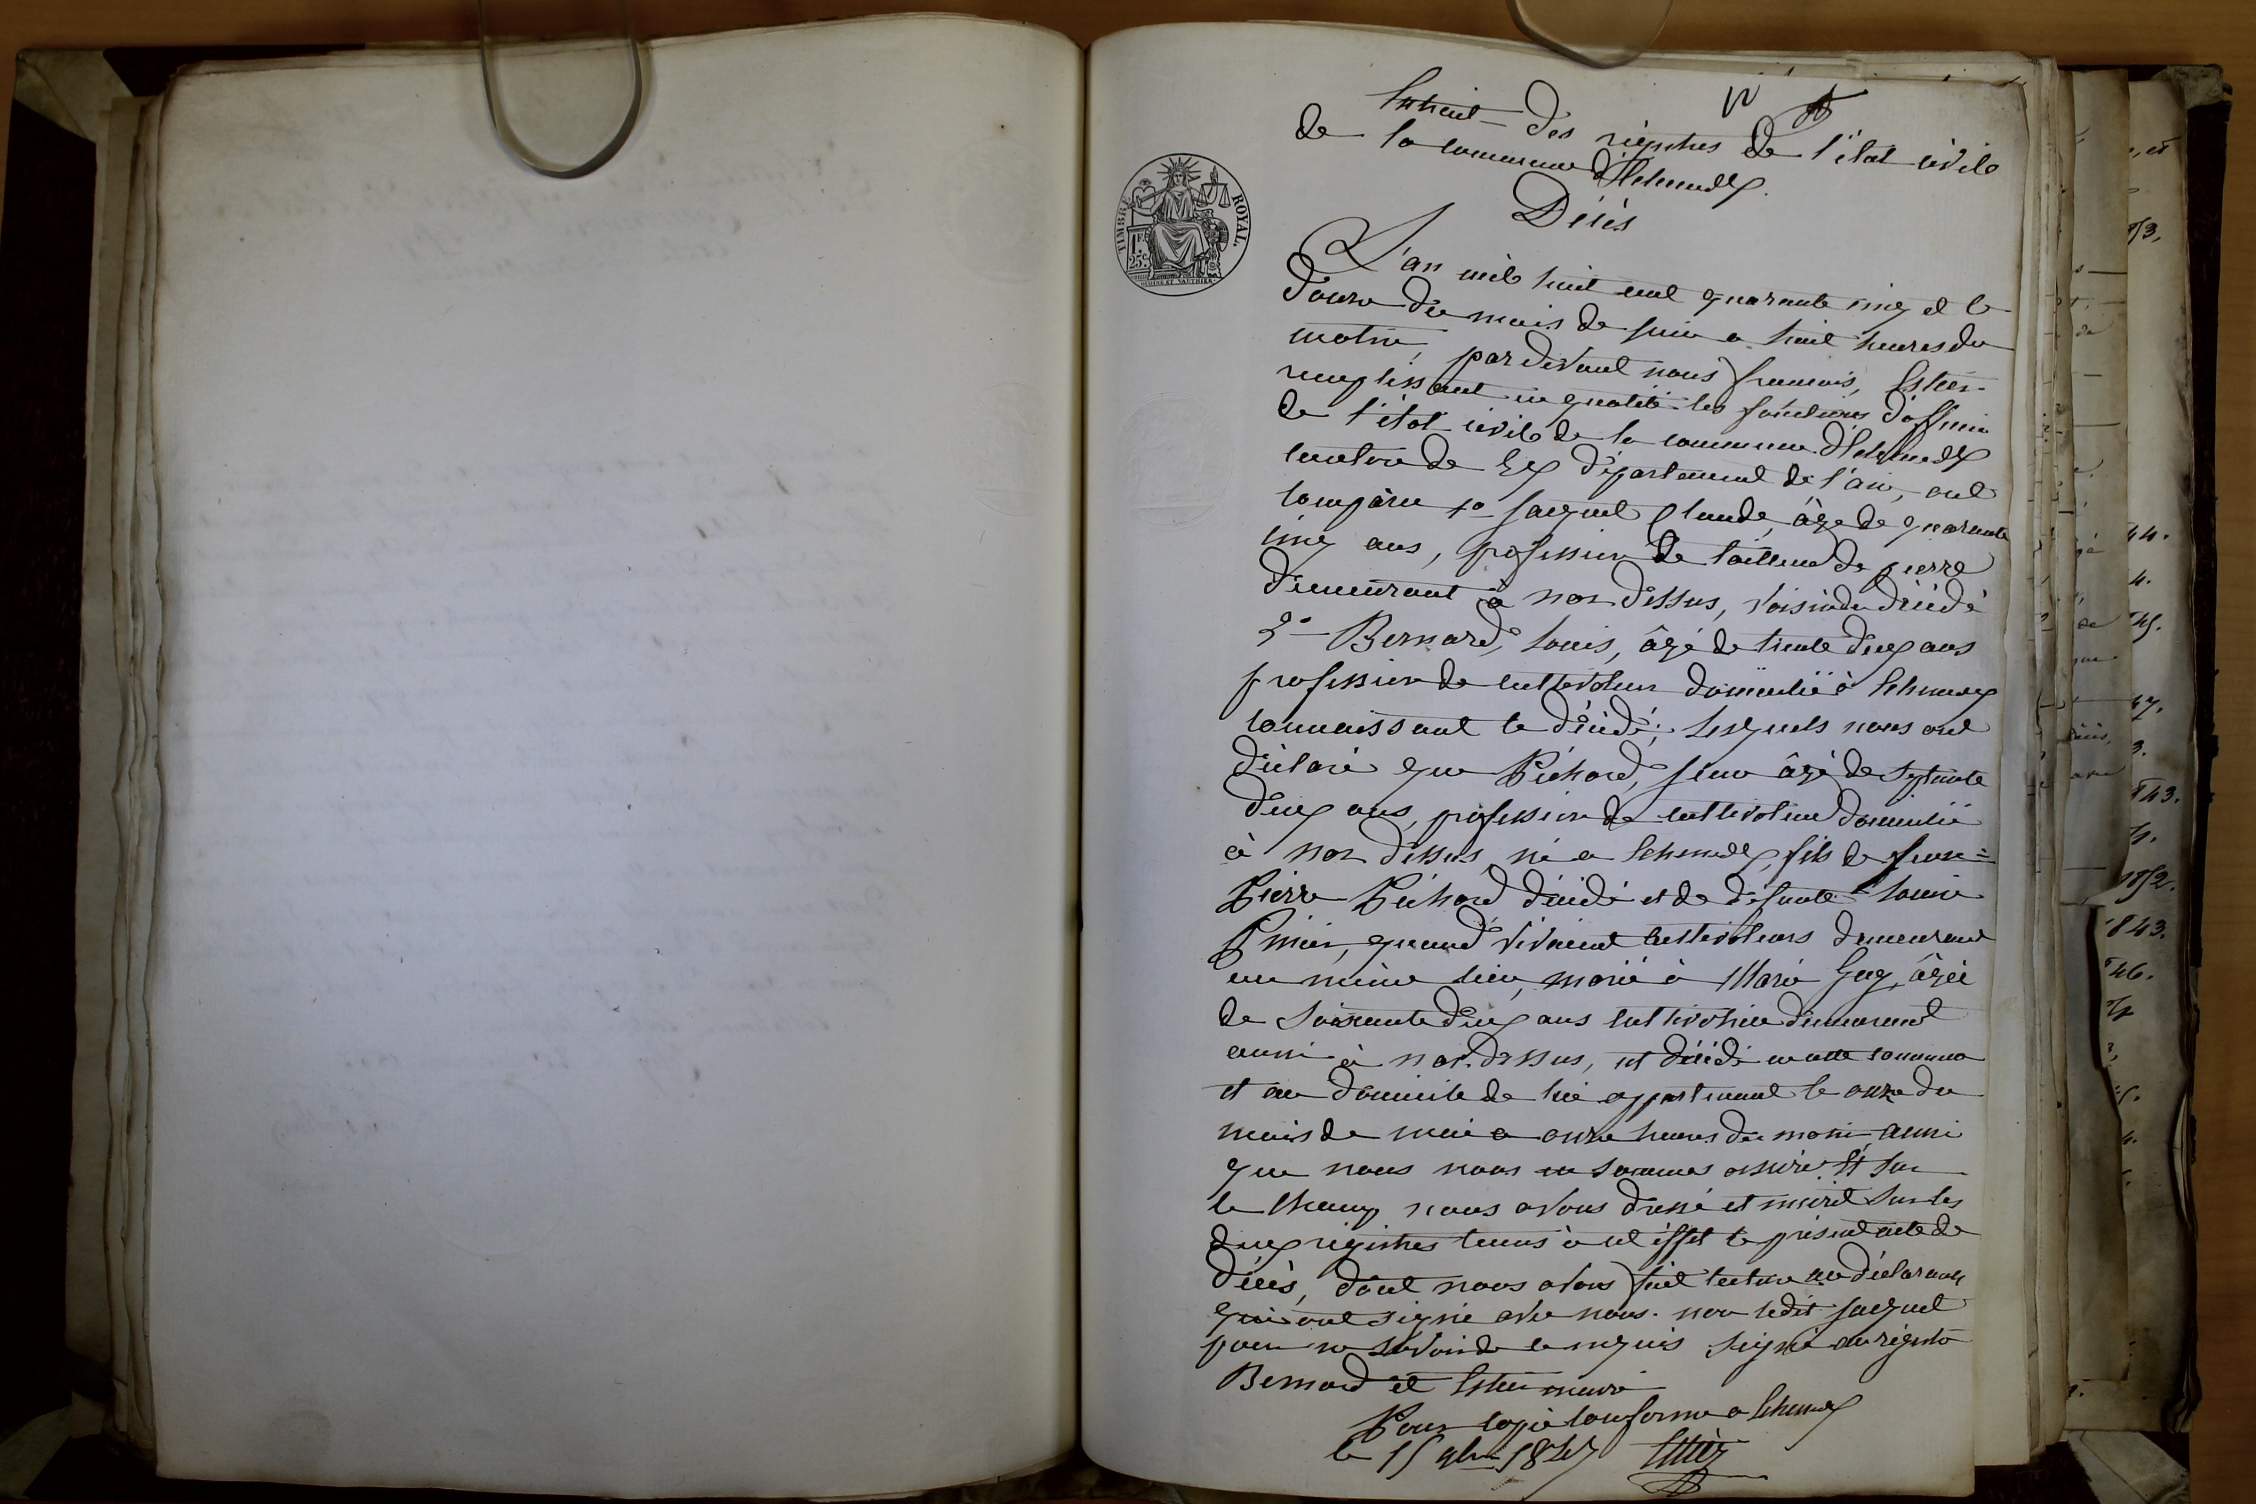 Extrait des régistres de l'état civile
de la commune d'Echenevex.
Décès
TIMBRE ROYAL.
1F.
25c.
L'an mil huit cent quarante cinq et le
douze du mois de juin a huit heures du
matin, par devant nous françois, Estier
remplissant en qualité les fonctions d'officier
de l'état civile de la commune d'Echenevex
canton de Gex département de l'ain, ont
comparu 1o Jacquet Claude, âgé de quarante
cinq ans, profession de tailleur de pierre
demeurant à Naz dessus, voisin du décédé
2o Bernard, Louis, âgé de trente deux ans
profession de cultivateur domicilié à Echenevex
connaissant le décédé; Lesquels nous ont
déclaré que Péchoud, âgé de septante
deux ans, profession de cultivateur domicilié
à Naz dessus né a Echenevex, fils de
Pierre Péchoud décédé et de défunte Louise
quand vivaient cultivateurs demeurant
au même lieu, marié à Marie Guy, âgée
de soixante deux ans cultivatrice demeurant
aussi à Naz-dessus, est décédé en cette commune
et au domicile de lui appartenant le onze du
mois de a onze heures du matin, ainsi
que nous nous en sommes assuré. Et sur
le champ nous avons dressé et inscrit sur les
deux régistres tenus à cet effet le présent acte de
décès, dont nous avons fait lecture au déclarant
qui ont signé avec nous. non ledit Jacquet
pour ne savoir de ce requis signé au régistre
Bernard et Estier maire
Pour copie conforme a Echenevex
le 15 9bre 1847 Estier